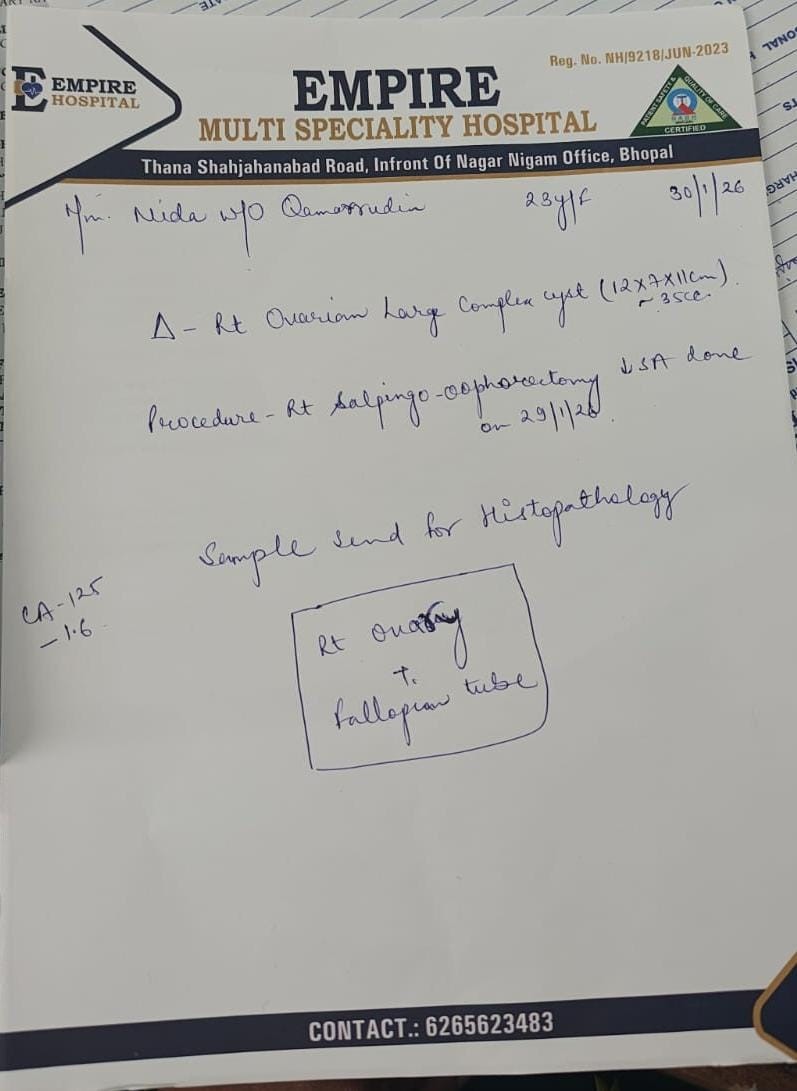 Reg. No. NH/9218/JUN-2023
EMPIRE
HOSPITAL
EMPIRE
MULTI SPECIALITY HOSPITAL
PATIENT SAFETY & QUALITY OF CARE
CERTIFIED
Thana Shahjahanabad Road, Infront Of Nagar Nigam Office, Bhopal
Nida w/o Qamarrudin 23y/F 30/1/26
Δ - Rt Ovarian Large Complex cyst (12x7x11cm).
Procedure - Rt Salpingo-oophorectomy ↓ SA done
on 29/1/26.
Sample send for Histopathology
CA-125
-1.6
Rt Ovary
+
fallopian tube
CONTACT.: 6265623483